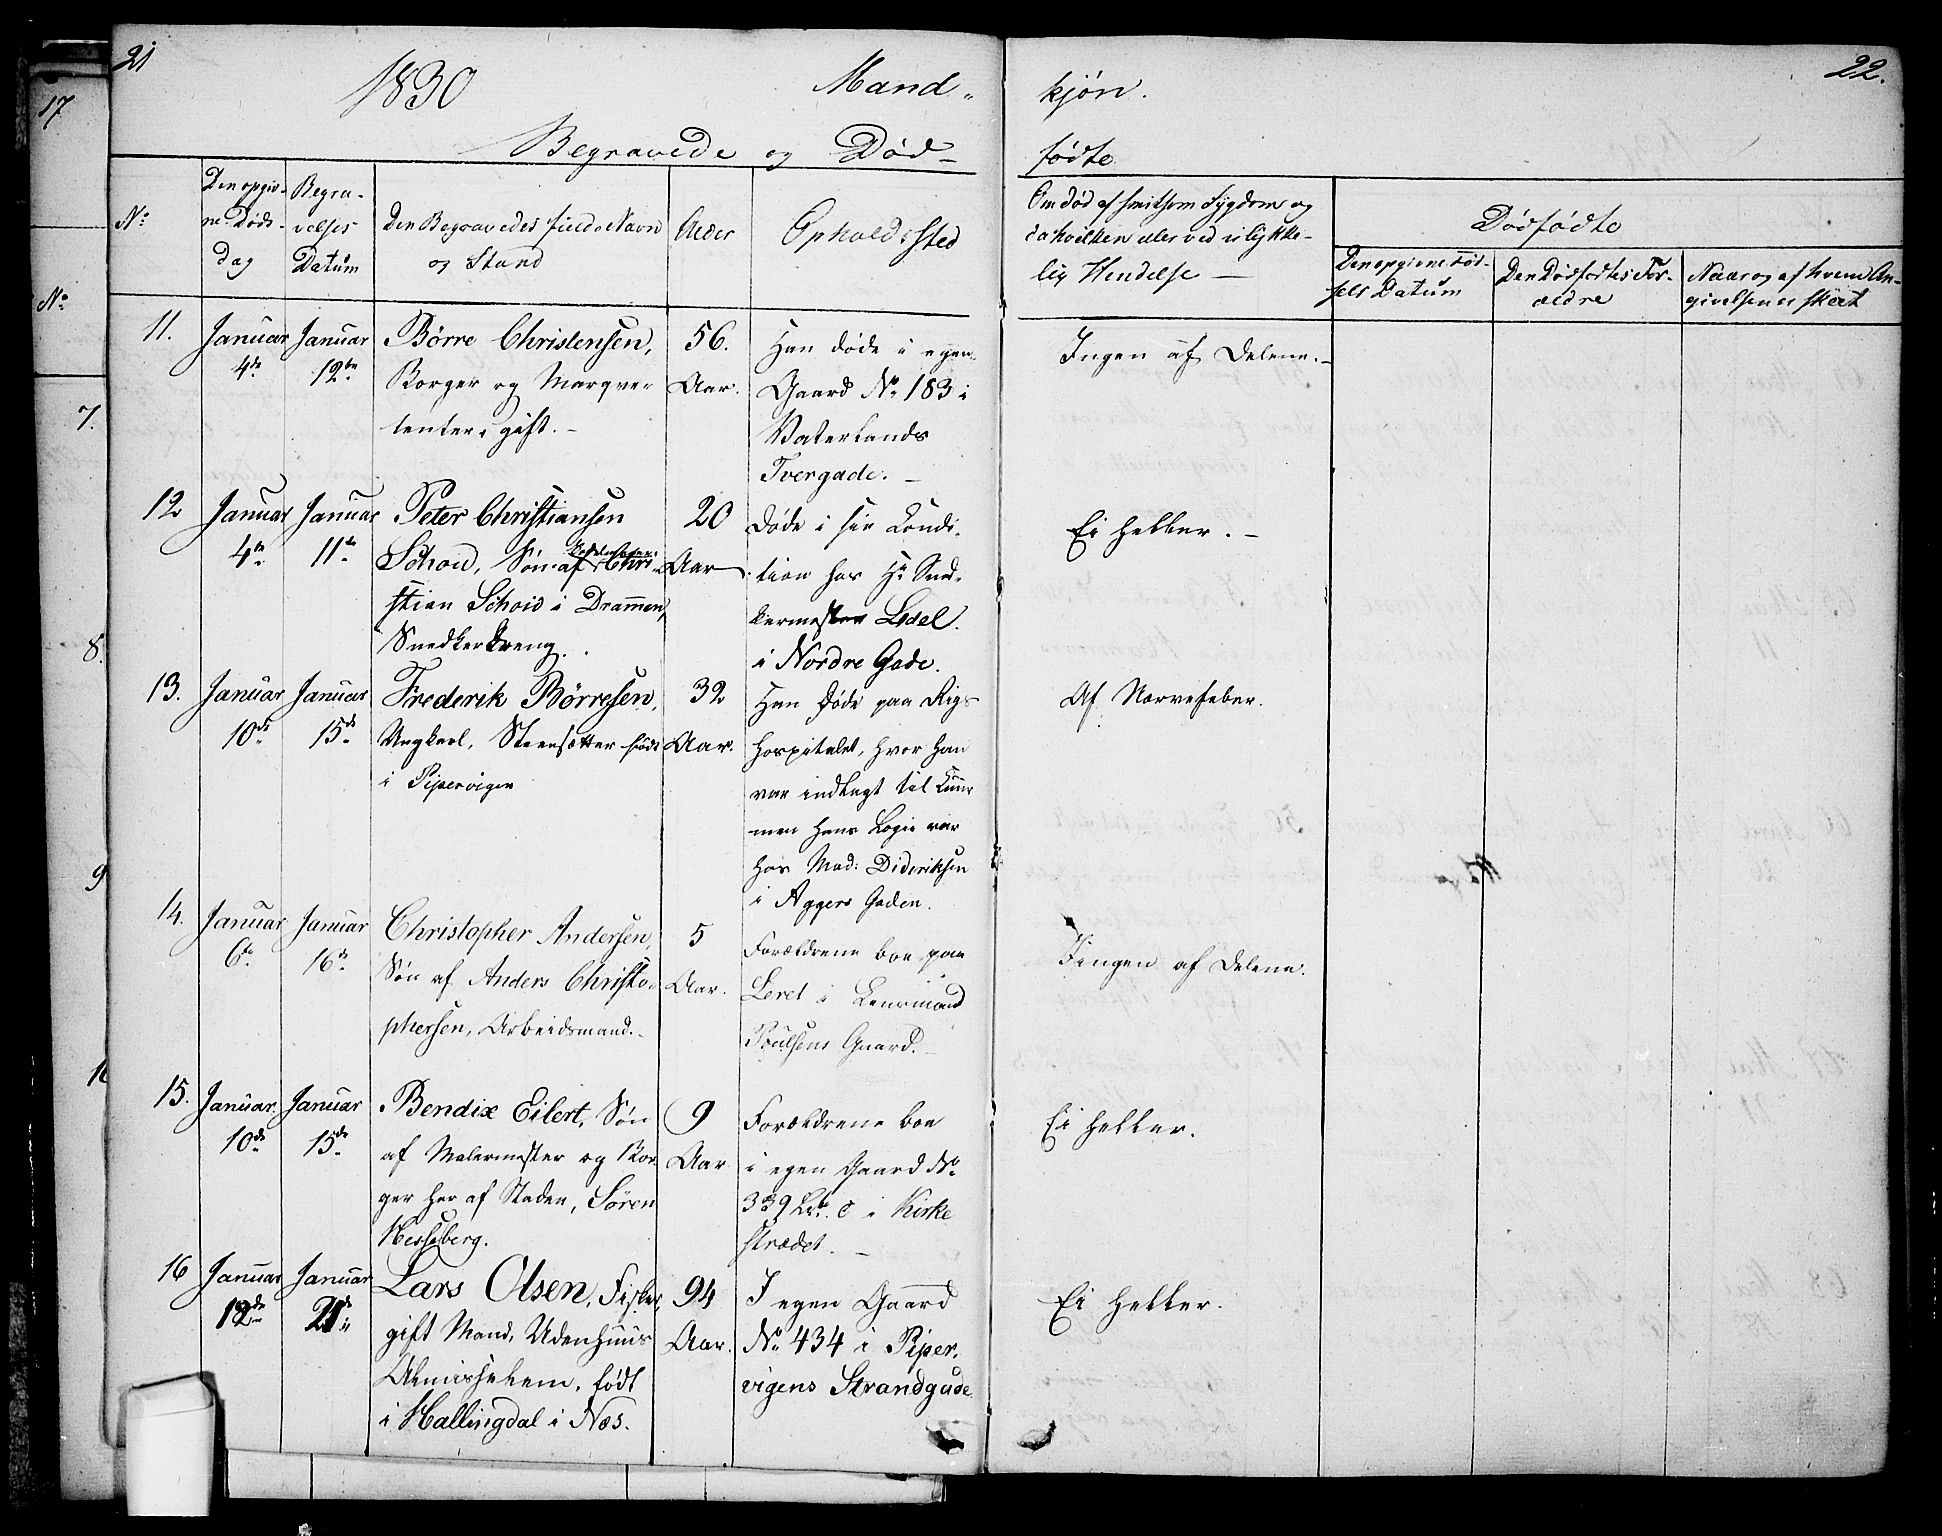 21
1830
Mand-
kjøn.
22.
Begravede og Død-
fødte
No
Den opgiv-
ne Døds-
Dag
Begra-
velses
Datum
Den Begravedes fulde Navn
og Stand
Alder
Opholdssted
Om død af smitsom Sygdom og
da hvilken eller ved ulykke-
lig Hendelse
Dødfødte
Den opgivne Fød-
sels Datum
Den Dødfødtes For-
ældre
Naar og af hvem An-
givelsen er skeet
11.
Januar
4de
Januar
12te
Børre Christensen,
Borger og Marqve-
tenter, gift.
56.
Aar.
Han døde i egen
Gaard No 183 i
Vaterlands
Tvergade.
Ingen af Delene.
12
Januar
4de
Januar
11te
Peter Christiansen
Schoid, Søn af Chri-
stian Schoid i Drammen,
Snedkerdreng.
20
Aar
døde i sin Condi-
tion hos Hr Sned-
kermester Lidel.
i Nordre Gade.
Ei heller.
13.
Januar
10de
Januar
15de
Frederik Børresen,
Ungkarl, Steensætter født
i Pipervigen
32
Aar.
Han døde paa Rigs
hospitalet, hvor han
var indlagt til Cuur
men hans Logie var
hos Mad: Dideriksen
i Aggers Gaden.
Af Nervefeber.
14.
Januar
6te
Januar
16de
Christopher Andersen,
Søn af Anders Christo-
phersen, Arbeidsmand.
5
Aar.
Forældrene boe paa
Leret i Lensmand
Poulsens Gaard.
Ingen af Delene.
15.
Januar
10de
Januar
15de
Bendix Eilert, Søn
af Malermester og Bor-
ger her af Staden, Søren
Hesselberg.
9
Aar
Forældrene boe
i egen Gaard No
339 Ltr. C i Kirke
strædet.
Ei heller.
16
Januar
18de
Januar
21de
Lars Olsen, Fisker,
gift Mand, Udenhuus
Almisselem, født
i Hallingdal i Næs.
94
Aar.
I egen Gaard
No 434 i Piper-
vigens Strandgade
Ei heller.
17
No
7.
8.
9